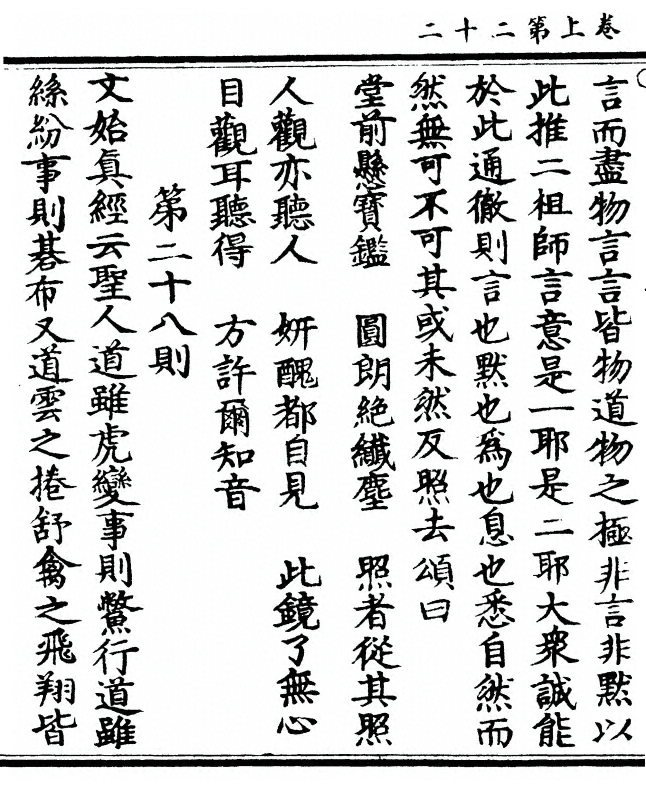 卷上第二十二
言而盡物言言皆物道物之極非言非默以
此推二祖師言意是一耶是二耶大衆誠能
於此通徹則言也默也爲也息也悉自然而
然無可不可其或未然反照去頌曰
堂前懸寶鑑 圓朗絶纖塵 照者從其照
人觀亦聽人 妍醜都自見 此鏡了無心
目觀耳聽得 方許爾知音
第二十八則
文始眞經云聖人道雖虎變事則鱉行道雖
絲紛事則棊布又道雲之捲舒禽之飛翔皆